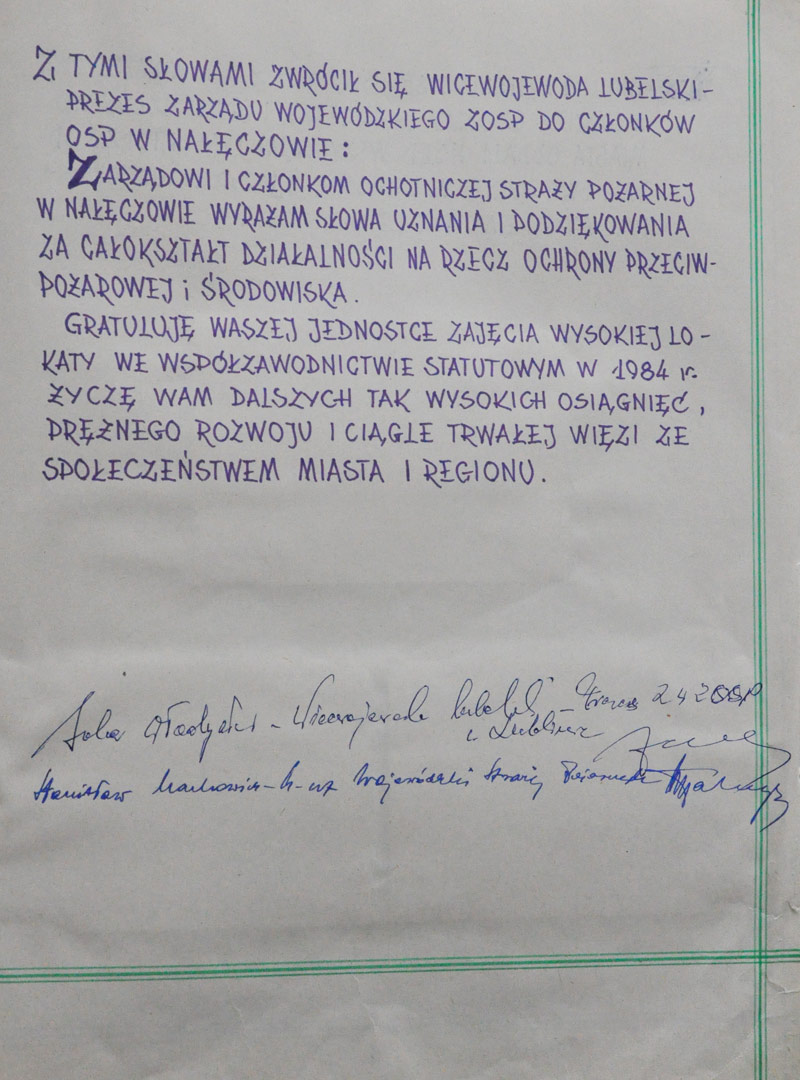 Z TYMI SŁOWAMI ZWRÓCIŁ SIĘ WICEWOJEWODA LUBELSKI-
PREZES ZARZĄDU WOJEWÓDZKIEGO ZOSP DO CZŁONKÓW
OSP W NAŁĘCZOWIE:
ZARZĄDOWI I CZŁONKOM OCHOTNICZEJ STRAŻY POŻARNEJ
W NAŁĘCZOWIE WYRAŻAM SŁOWA UZNANIA I PODZIĘKOWANIA
ZA CAŁOKSZTAŁT DZIAŁALNOŚCI NA RZECZ OCHRONY PRZECIW-
POŻAROWEJ i ŚRODOWISKA.
GRATULUJĘ WASZEJ JEDNOSTCE ZAJĘCIA WYSOKIEJ LO-
KATY WE WSPÓŁZAWODNICTWIE STATUTOWYM W 1984 r.
ŻYCZĘ WAM DALSZYCH TAK WYSOKICH OSIĄGNIĘĆ,
PRĘŻNEGO ROZWOJU I CIĄGLE TRWAŁEJ WIĘZI ZE
SPOŁECZEŃSTWEM MIASTA I REGIONU.
Wicewojewoda lubelski - Prezes ZW ZOSP
w Lublinie
Stanisław K-nt Wojewódzki Straży